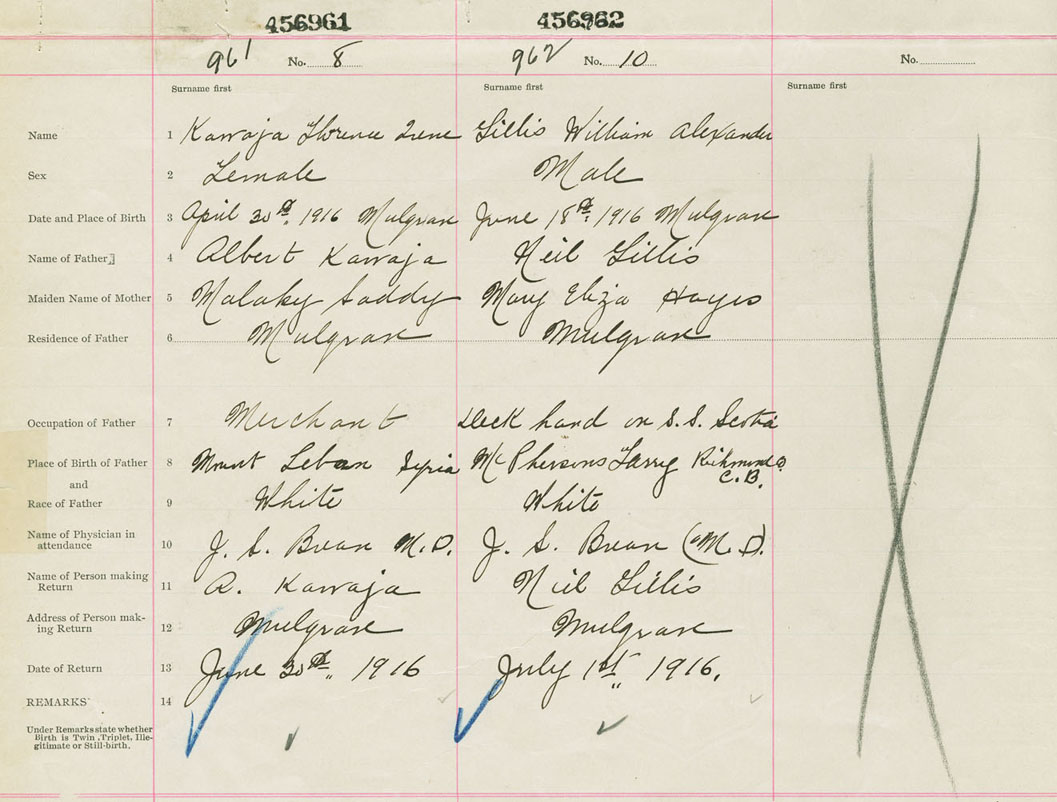 456961 456962
961 No. 8 962 No. 10 No.
Surname first Surname first Surname first
Name 1 Kawaja Florence Irene Gillis William Alexander
Sex 2 Female Male
Date and Place of Birth 3 April 30th, 1916 Mulgrave June 18th, 1916 Mulgrave
Name of Father 4 Albert Kawaja Neil Gillis
Maiden Name of Mother 5 Malaky Saddy Mary Eliza Hayes
Residence of Father 6 Mulgrave Mulgrave
Occupation of Father 7 Merchant Deck hand on S.S. Scotia
Place of Birth of Father 8 Mount Leban Syria McPhersons Ferry Richmond
and C.B.
Race of Father 9 White White
Name of Physician in
attendance 10 J. S. M.D. J. S. (M.D).
Name of Person making
Return 11 A. Kawaja Neil Gillis
Address of Person mak-
ing Return 12 Mulgrave Mulgrave
Date of Return 13 June 30th, 1916 July 1st, 1916.
REMARKS 14
Under Remarks state whether
Birth is Twin, Triplet, Ille-
gitimate or Still-birth.